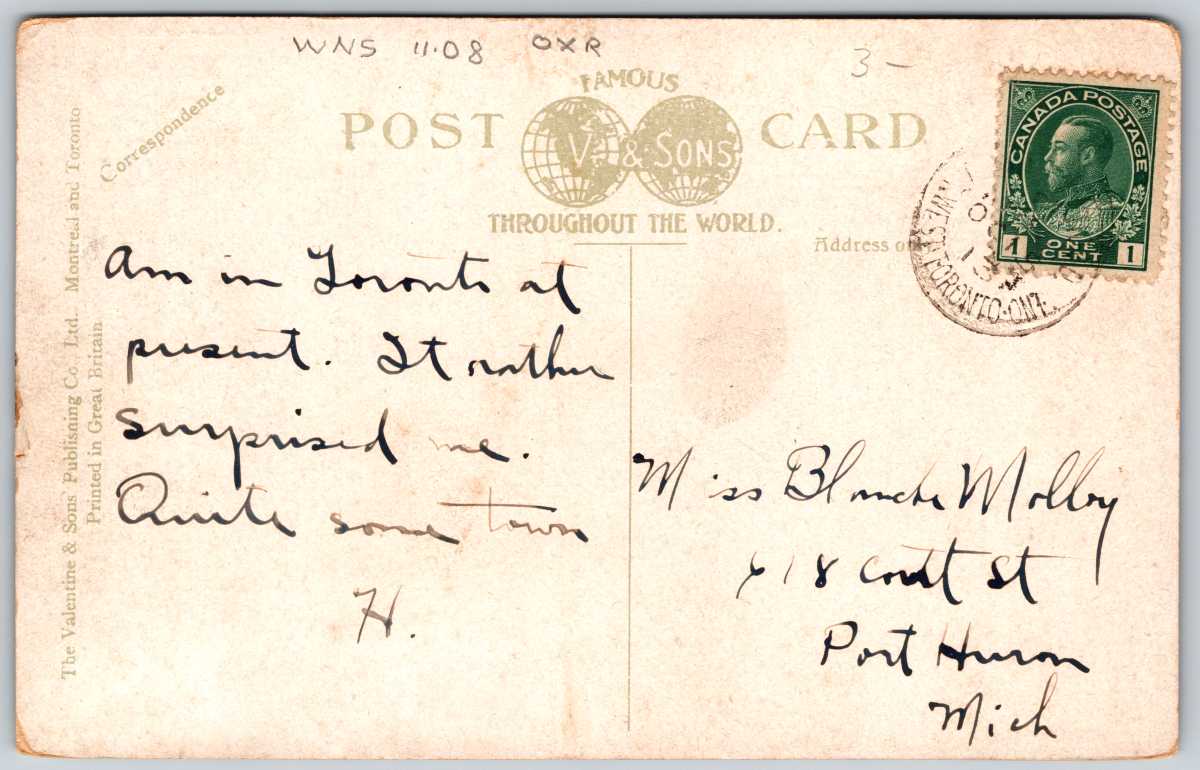 WNS 11.08 OXR
3-
FAMOUS
POST CARD
V. & SONS
THROUGHOUT THE WORLD.
Correspondence
Address
The Valentine & Sons' Publishing Co., Ltd. Montreal and Toronto
Printed in Great Britain
CANADA POSTAGE
1 ONE CENT 1
WEST TORONTO·ONT.
Am in Toronto at
present. It rather
surprised me.
Quite some town
H.
Miss Blanche Molloy
618 Court St
Port Huron
Mich